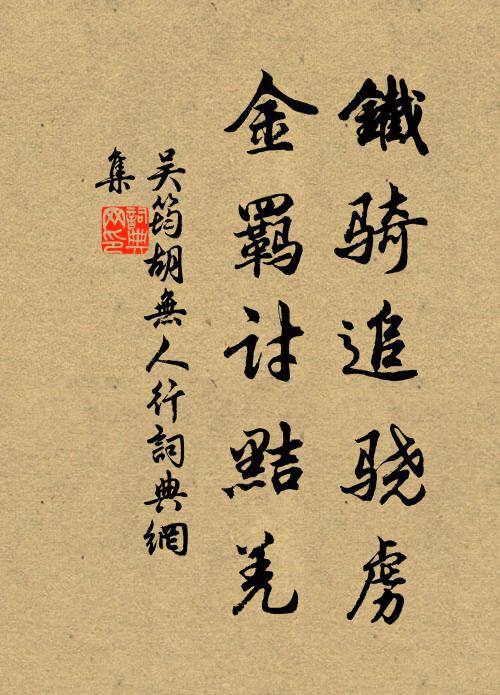 鐵骑追骁虜
金羈討黠羌
吴筠胡無人行詞典網
集
詞典
网印